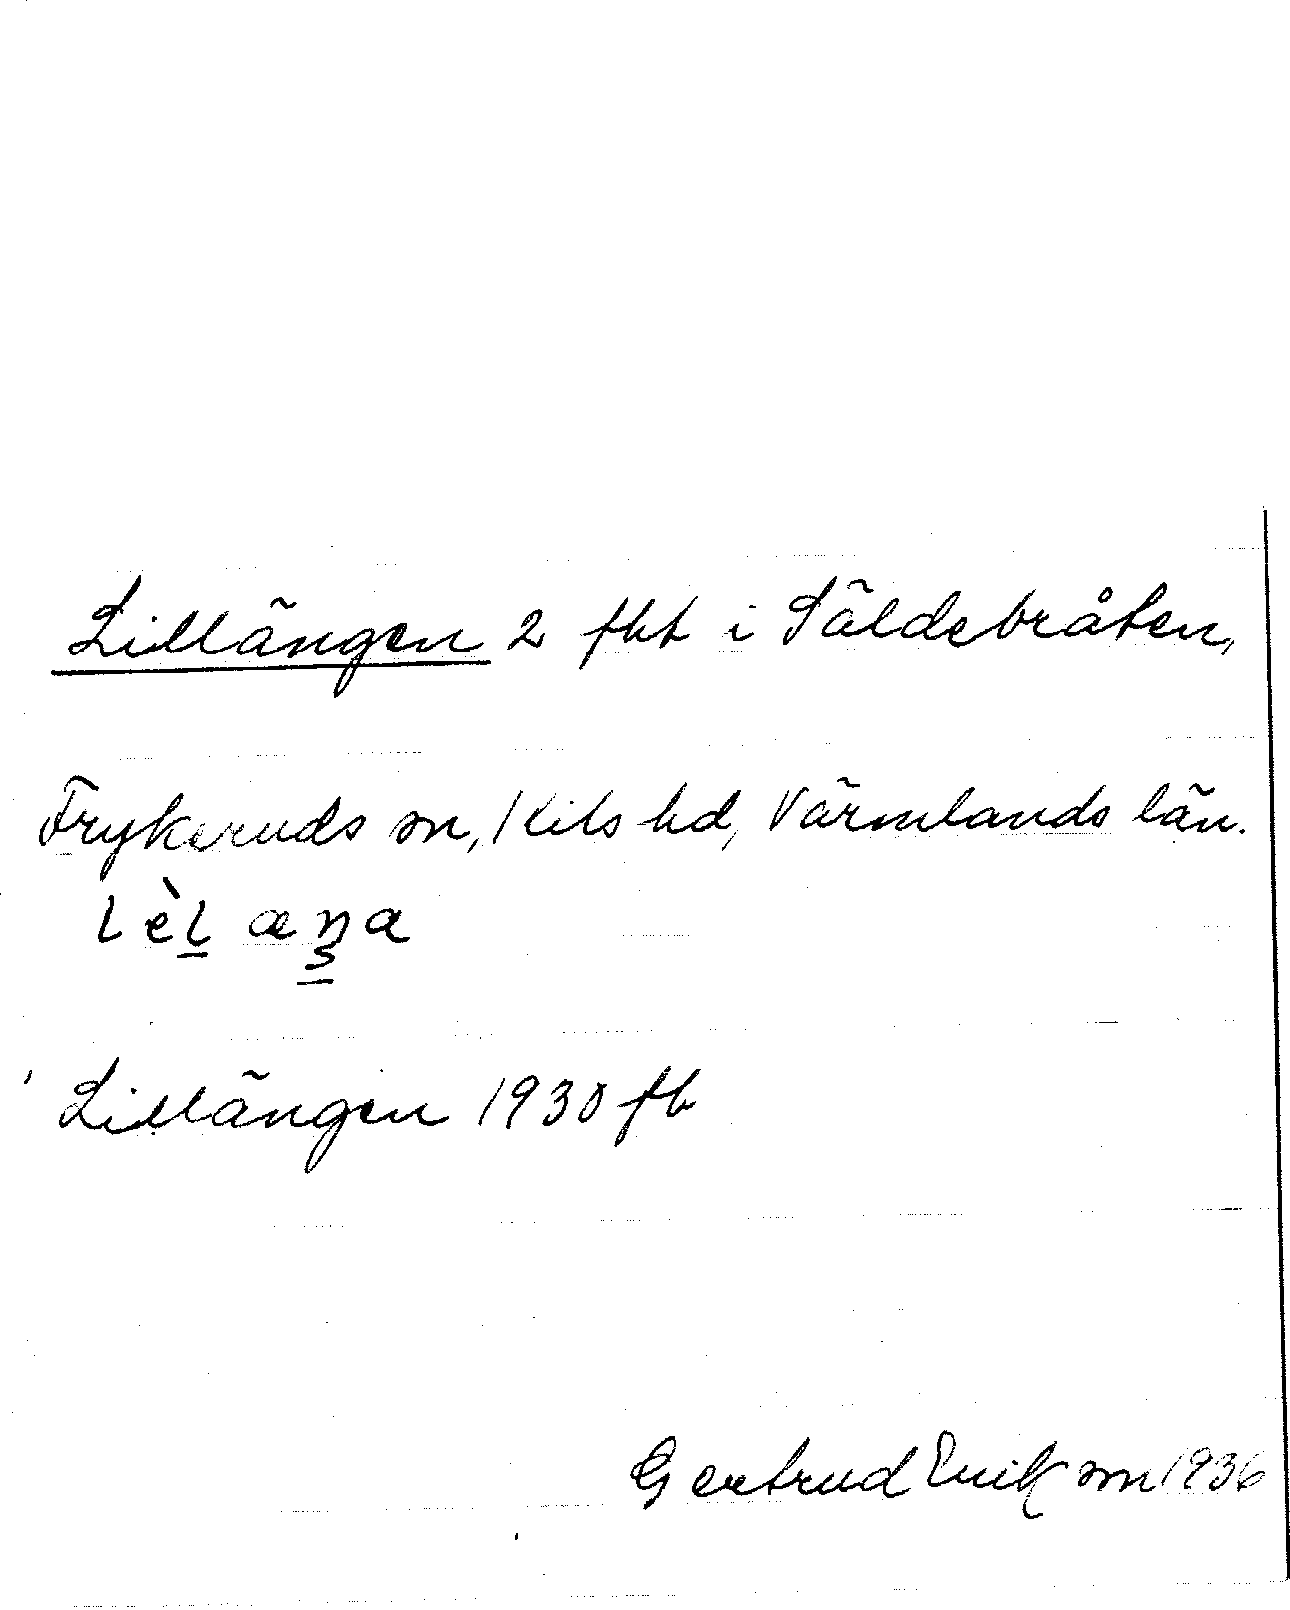 Lillängen 2 fht i Säldebråten,
Frykeruds sn, Kils hd, Värmlands län.
lèl æŋa
Lillängen 1930 fb
Gertrud Erikson 1936